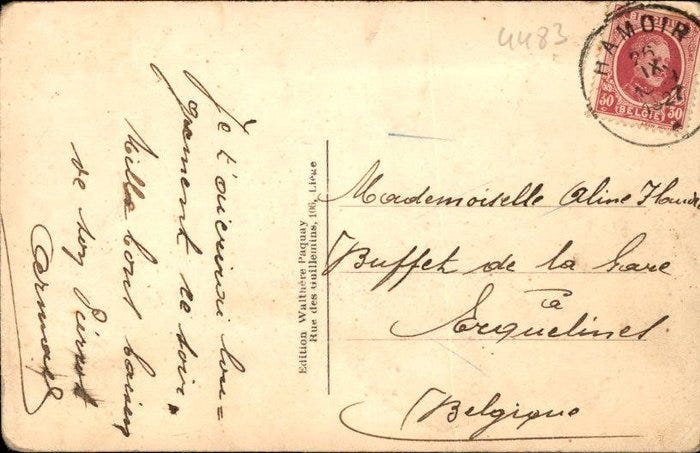 4483
HAMOIR
26
IX
1927
BELGIE
30 30
Je t'écrirai lon=
guement ce soir.
Mille bons baisers
de ton Pierrot
Edition Walthère Paquay
Rue des Guillemins, 106, Liége
Mademoiselle Aline
Buffet de la Gare
à
Erquelinnes
Belgique